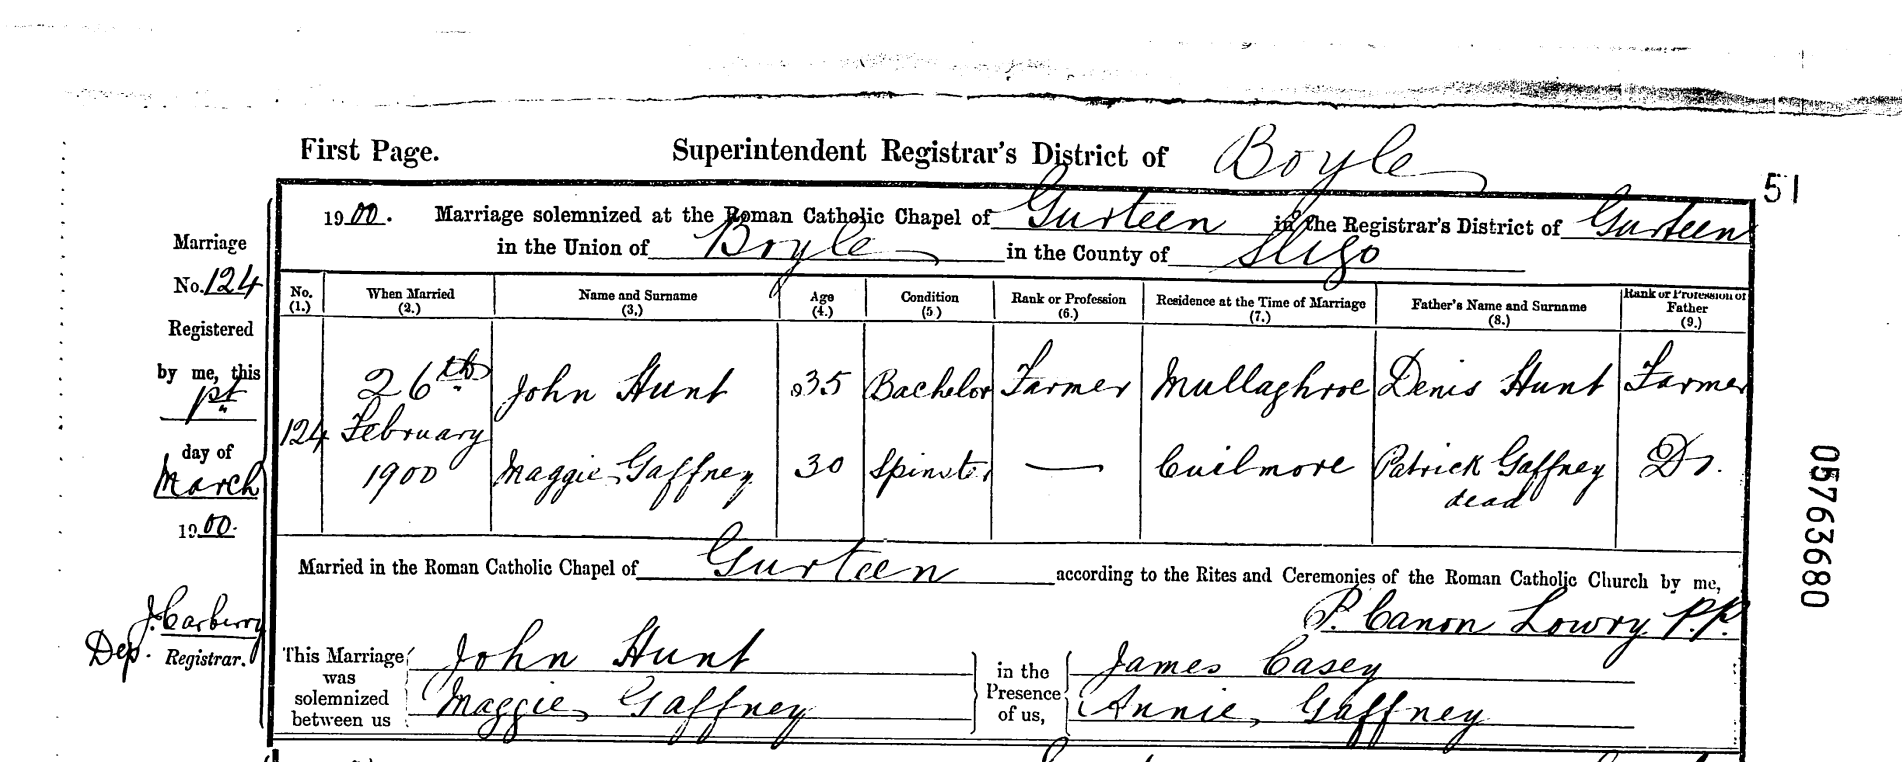 First Page. Superintendent Registrar's District of Boyle
51
1900. Marriage solemnized at the Roman Catholic Chapel of Gurteen in the Registrar's District of Gurteen
in the Union of Boyle in the County of Sligo
Marriage
No. 124
Registered
by me, this
1st
day of
March
1900.
J. Carberry
Dep. Registrar.
No. (1.) When Married (2.) Name and Surname (3.) Age (4.) Condition (5) Rank or Profession (6.) Residence at the Time of Marriage (7.) Father's Name and Surname (8.) Rank or Profession of Father (9.)
26th John Hunt 35 Bachelor Farmer Mullaghroe Denis Hunt Farmer
124 February
1900 Maggie Gaffney 30 Spinster — Cuilmore Patrick Gaffney Do.
dead
Married in the Roman Catholic Chapel of Gurteen according to the Rites and Ceremonies of the Roman Catholic Church by me,
P. Canon Lowry P.P.
This Marriage was solemnized between us
John Hunt
Maggie Gaffney
in the Presence of us,
James Casey
Annie Gaffney
05763680